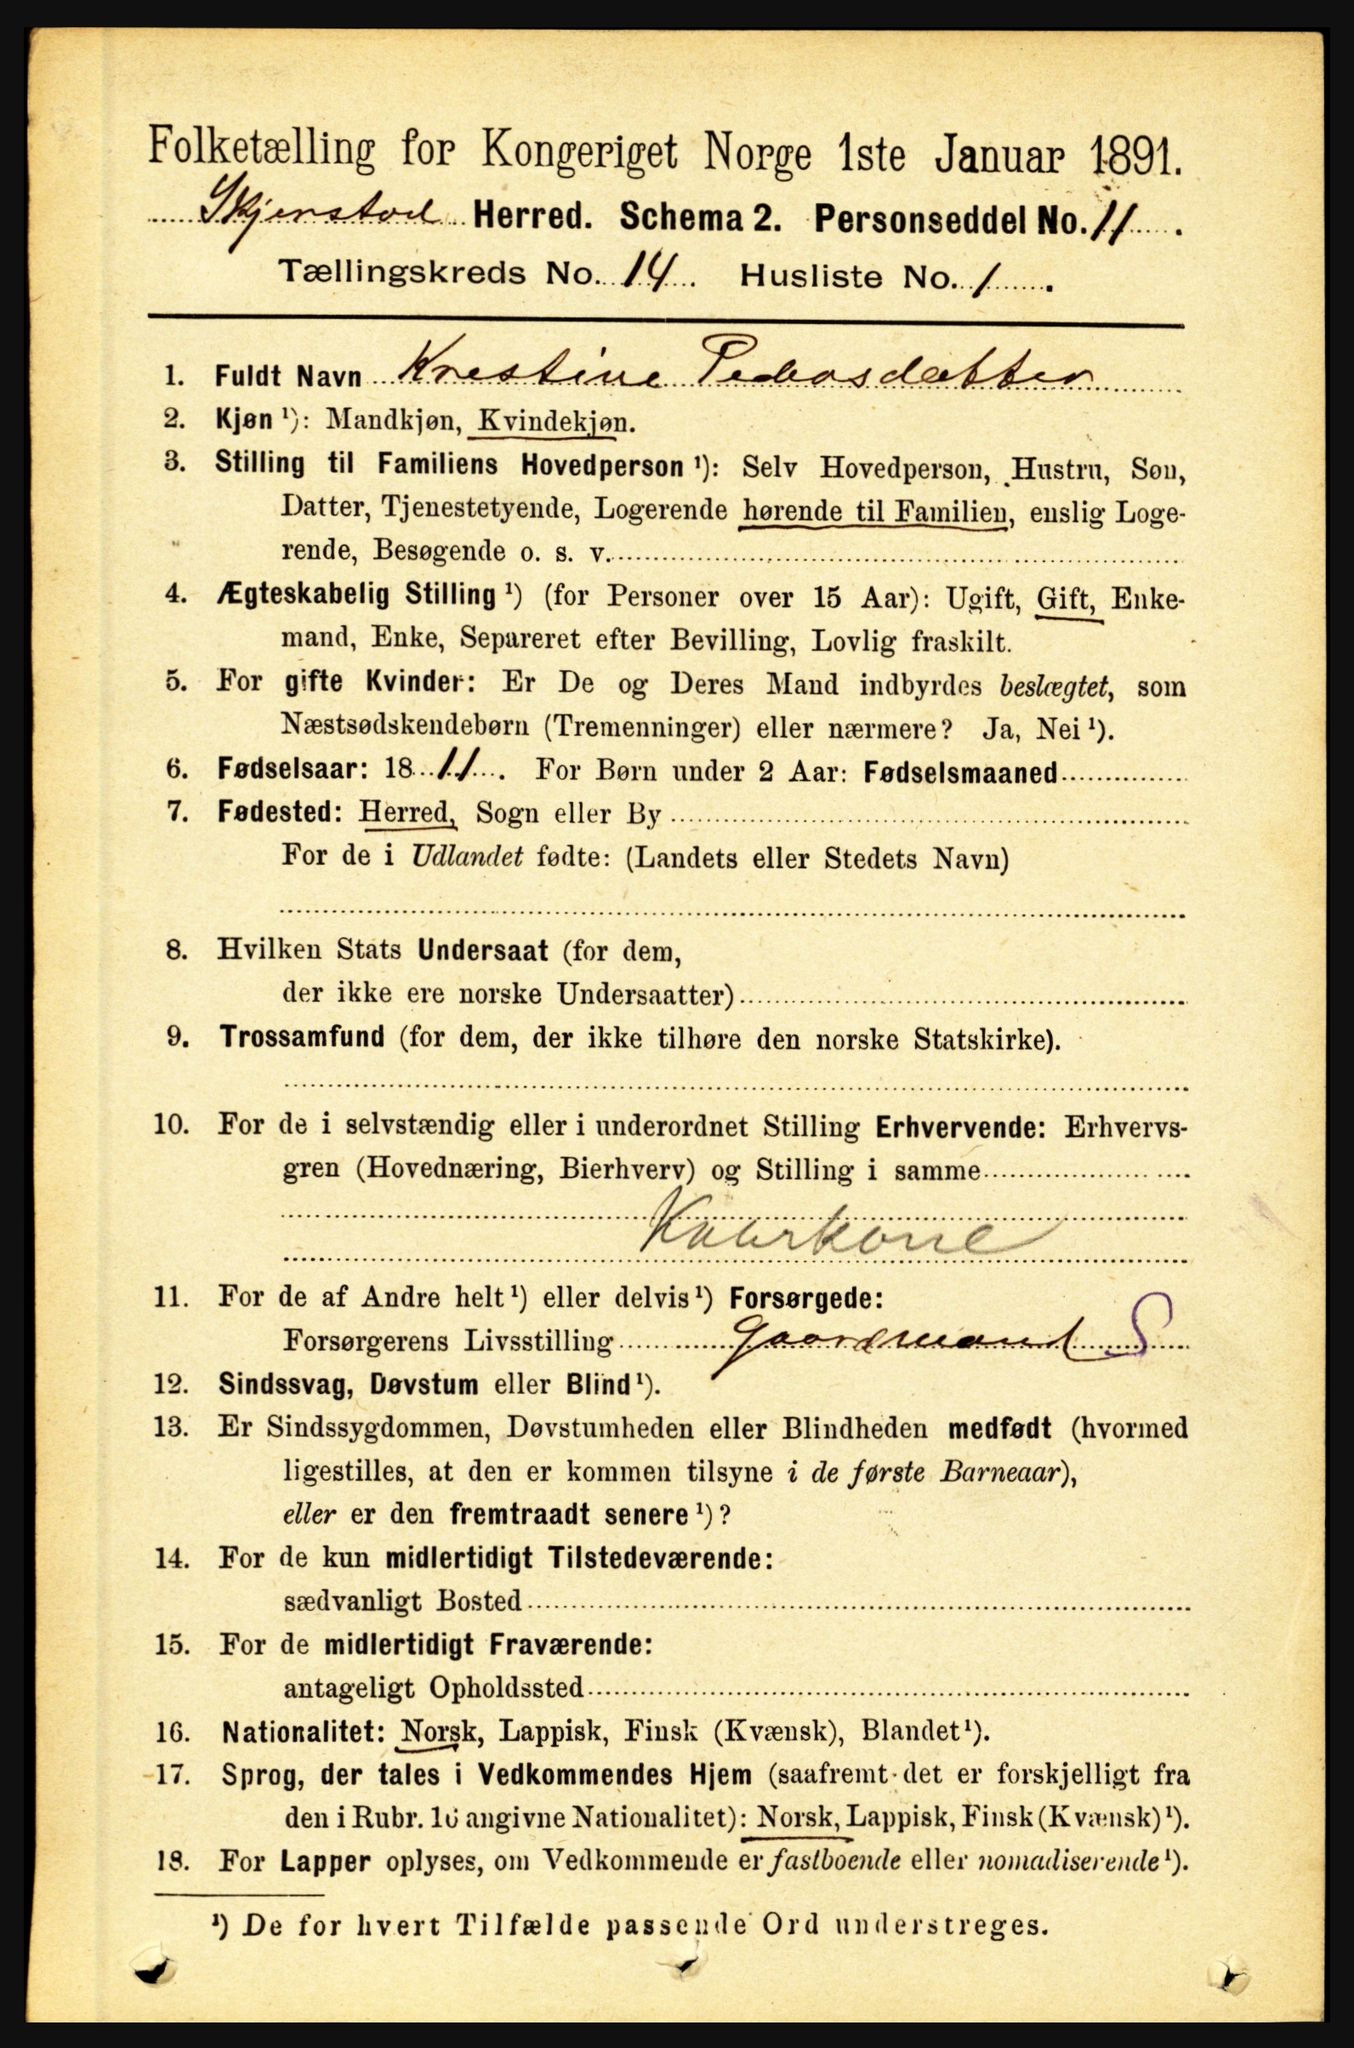 Folketælling for Kongeriget Norge 1ste Januar 1891.
Skjerstad Herred. Schema 2. Personseddel No. 11.
Tællingskreds No. 14. Husliste No. 1.
1. Fuldt Navn Krestine Pedersdatter
2. Kjøn ¹): Mandkjøn, Kvindekjøn.
3. Stilling til Familiens Hovedperson ¹): Selv Hovedperson, Hustru, Søn,
Datter, Tjenestetyende, Logerende hørende til Familien, enslig Loge-
rende, Besøgende o. s. v.
4. Ægteskabelig Stilling ¹) (for Personer over 15 Aar): Ugift, Gift, Enke-
mand, Enke, Separeret efter Bevilling, Lovlig fraskilt.
5. For gifte Kvinder: Er De og Deres Mand indbyrdes beslægtet, som
Næstsødskendebørn (Tremenninger) eller nærmere? Ja, Nei ¹).
6. Fødselsaar: 1811. For Børn under 2 Aar: Fødselsmaaned
7. Fødested: Herred, Sogn eller By
For de i Udlandet fødte: (Landets eller Stedets Navn)
8. Hvilken Stats Undersaat (for dem,
der ikke ere norske Undersaatter)
9. Trossamfund (for dem, der ikke tilhøre den norske Statskirke).
10. For de i selvstændig eller i underordnet Stilling Erhvervende: Erhvervs-
gren (Hovednæring, Bierhverv) og Stilling i samme
Kaarkone
11. For de af Andre helt ¹) eller delvis ¹) Forsørgede:
Forsørgerens Livsstilling Gaardmand S
12. Sindssvag, Døvstum eller Blind ¹).
13. Er Sindssygdommen, Døvstumheden eller Blindheden medfødt (hvormed
ligestilles, at den er kommen tilsyne i de første Barneaar),
eller er den fremtraadt senere ¹)?
14. For de kun midlertidigt Tilstedeværende:
sædvanligt Bosted
15. For de midlertidigt Fraværende:
antageligt Opholdssted
16. Nationalitet: Norsk, Lappisk, Finsk (Kvænsk), Blandet ¹).
17. Sprog, der tales i Vedkommendes Hjem (saafremt det er forskjelligt fra
den i Rubr. 16 angivne Nationalitet): Norsk, Lappisk, Finsk (Kvænsk) ¹).
18. For Lapper oplyses, om Vedkommende er fastboende eller nomadiserende ¹).
¹) De for hvert Tilfælde passende Ord understreges.